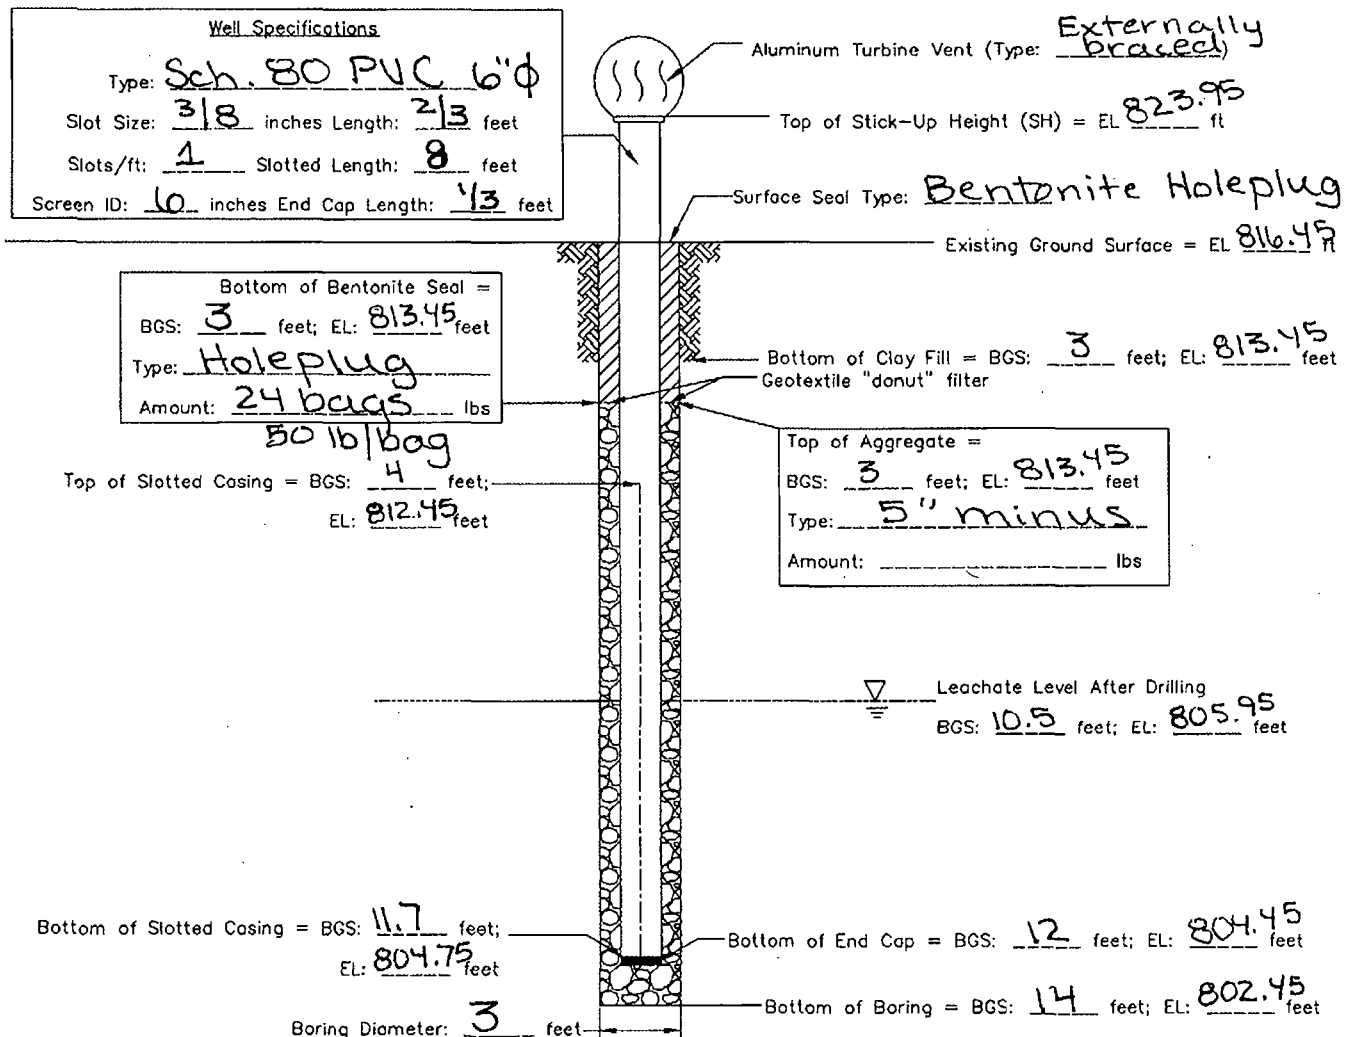 Well Specifications
Type: Sch. 80 PVC 6"ϕ
Slot Size: 3/8 inches Length: 2/3 feet
Slots/ft: 1 Slotted Length: 8 feet
Screen ID: 6 inches End Cap Length: 1/3 feet
Aluminum Turbine Vent (Type: Externally braced)
Top of Stick-Up Height (SH) = EL 823.95 ft
Surface Seal Type: Bentonite Holeplug
Existing Ground Surface = EL 816.45 ft
Bottom of Bentonite Seal =
BGS: 3 feet; EL: 813.45 feet
Type: Holeplug
Amount: 24 bags lbs
50 lb/bag
Bottom of Clay Fill = BGS: 3 feet; EL: 813.45 feet
Geotextile "donut" filter
Top of Aggregate =
BGS: 3 feet; EL: 813.45 feet
Type: 5" minus
Amount: lbs
Top of Slotted Casing = BGS: 4 feet;
EL: 812.45 feet
Leachate Level After Drilling
BGS: 10.5 feet; EL: 805.95 feet
Bottom of Slotted Casing = BGS: 11.7 feet;
EL: 804.75 feet
Bottom of End Cap = BGS: 12 feet; EL: 804.45 feet
Bottom of Boring = BGS: 14 feet; EL: 802.45 feet
Boring Diameter: 3 feet